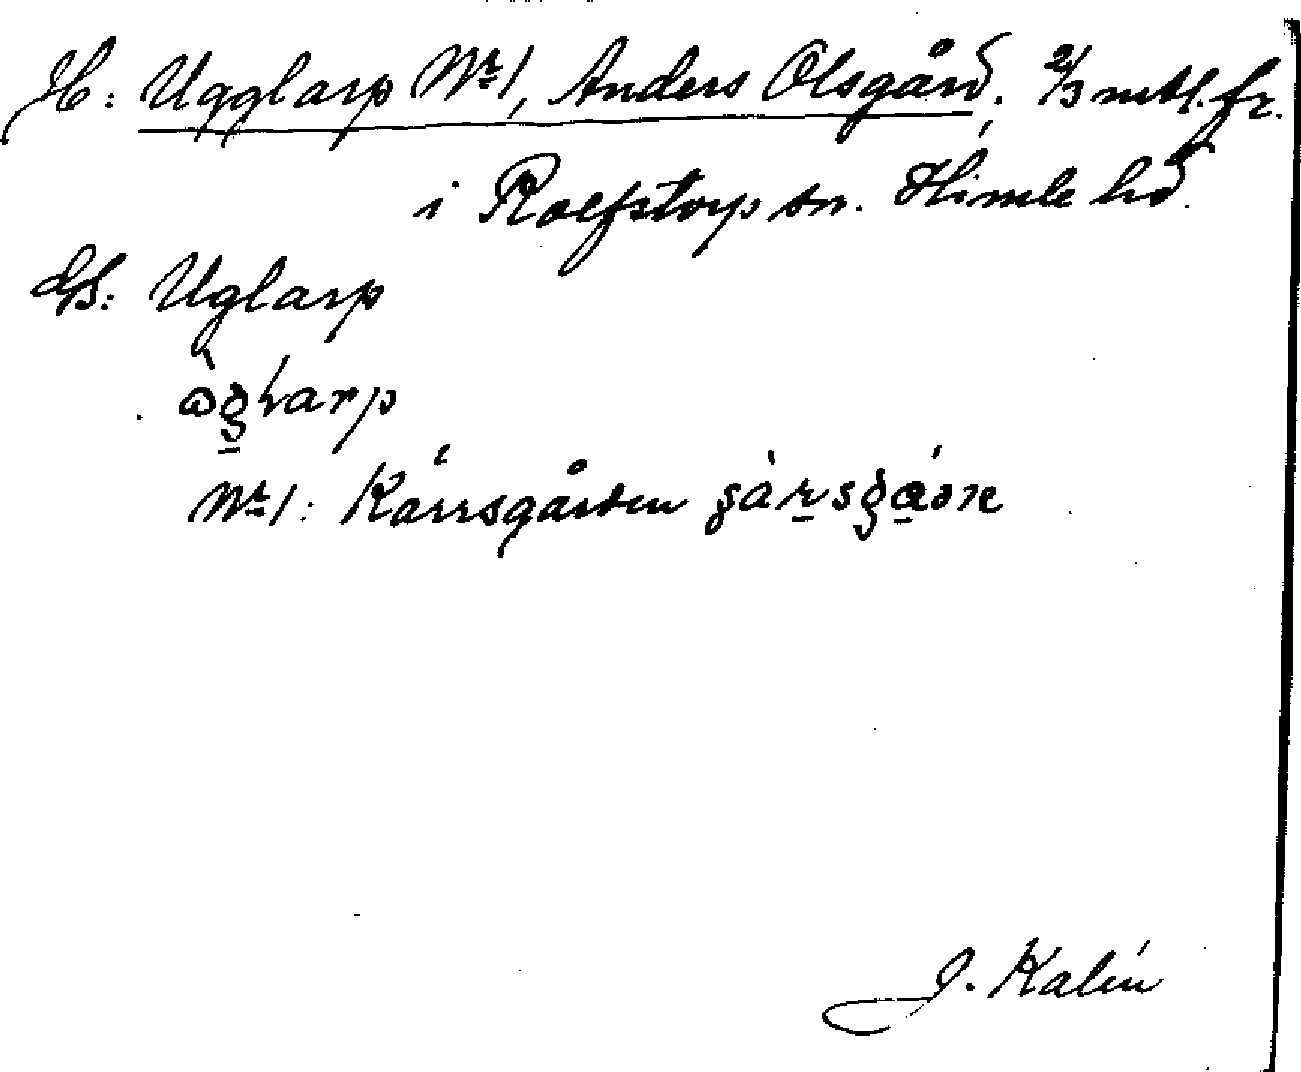 H: Ugglarp Nr 1, Anders Olsgård. 2/3 mtl. fr.
i Rolfstorp sn. Himle hd.
GS: Uglarp
Nr 1: Kärrsgården
J. Kalén